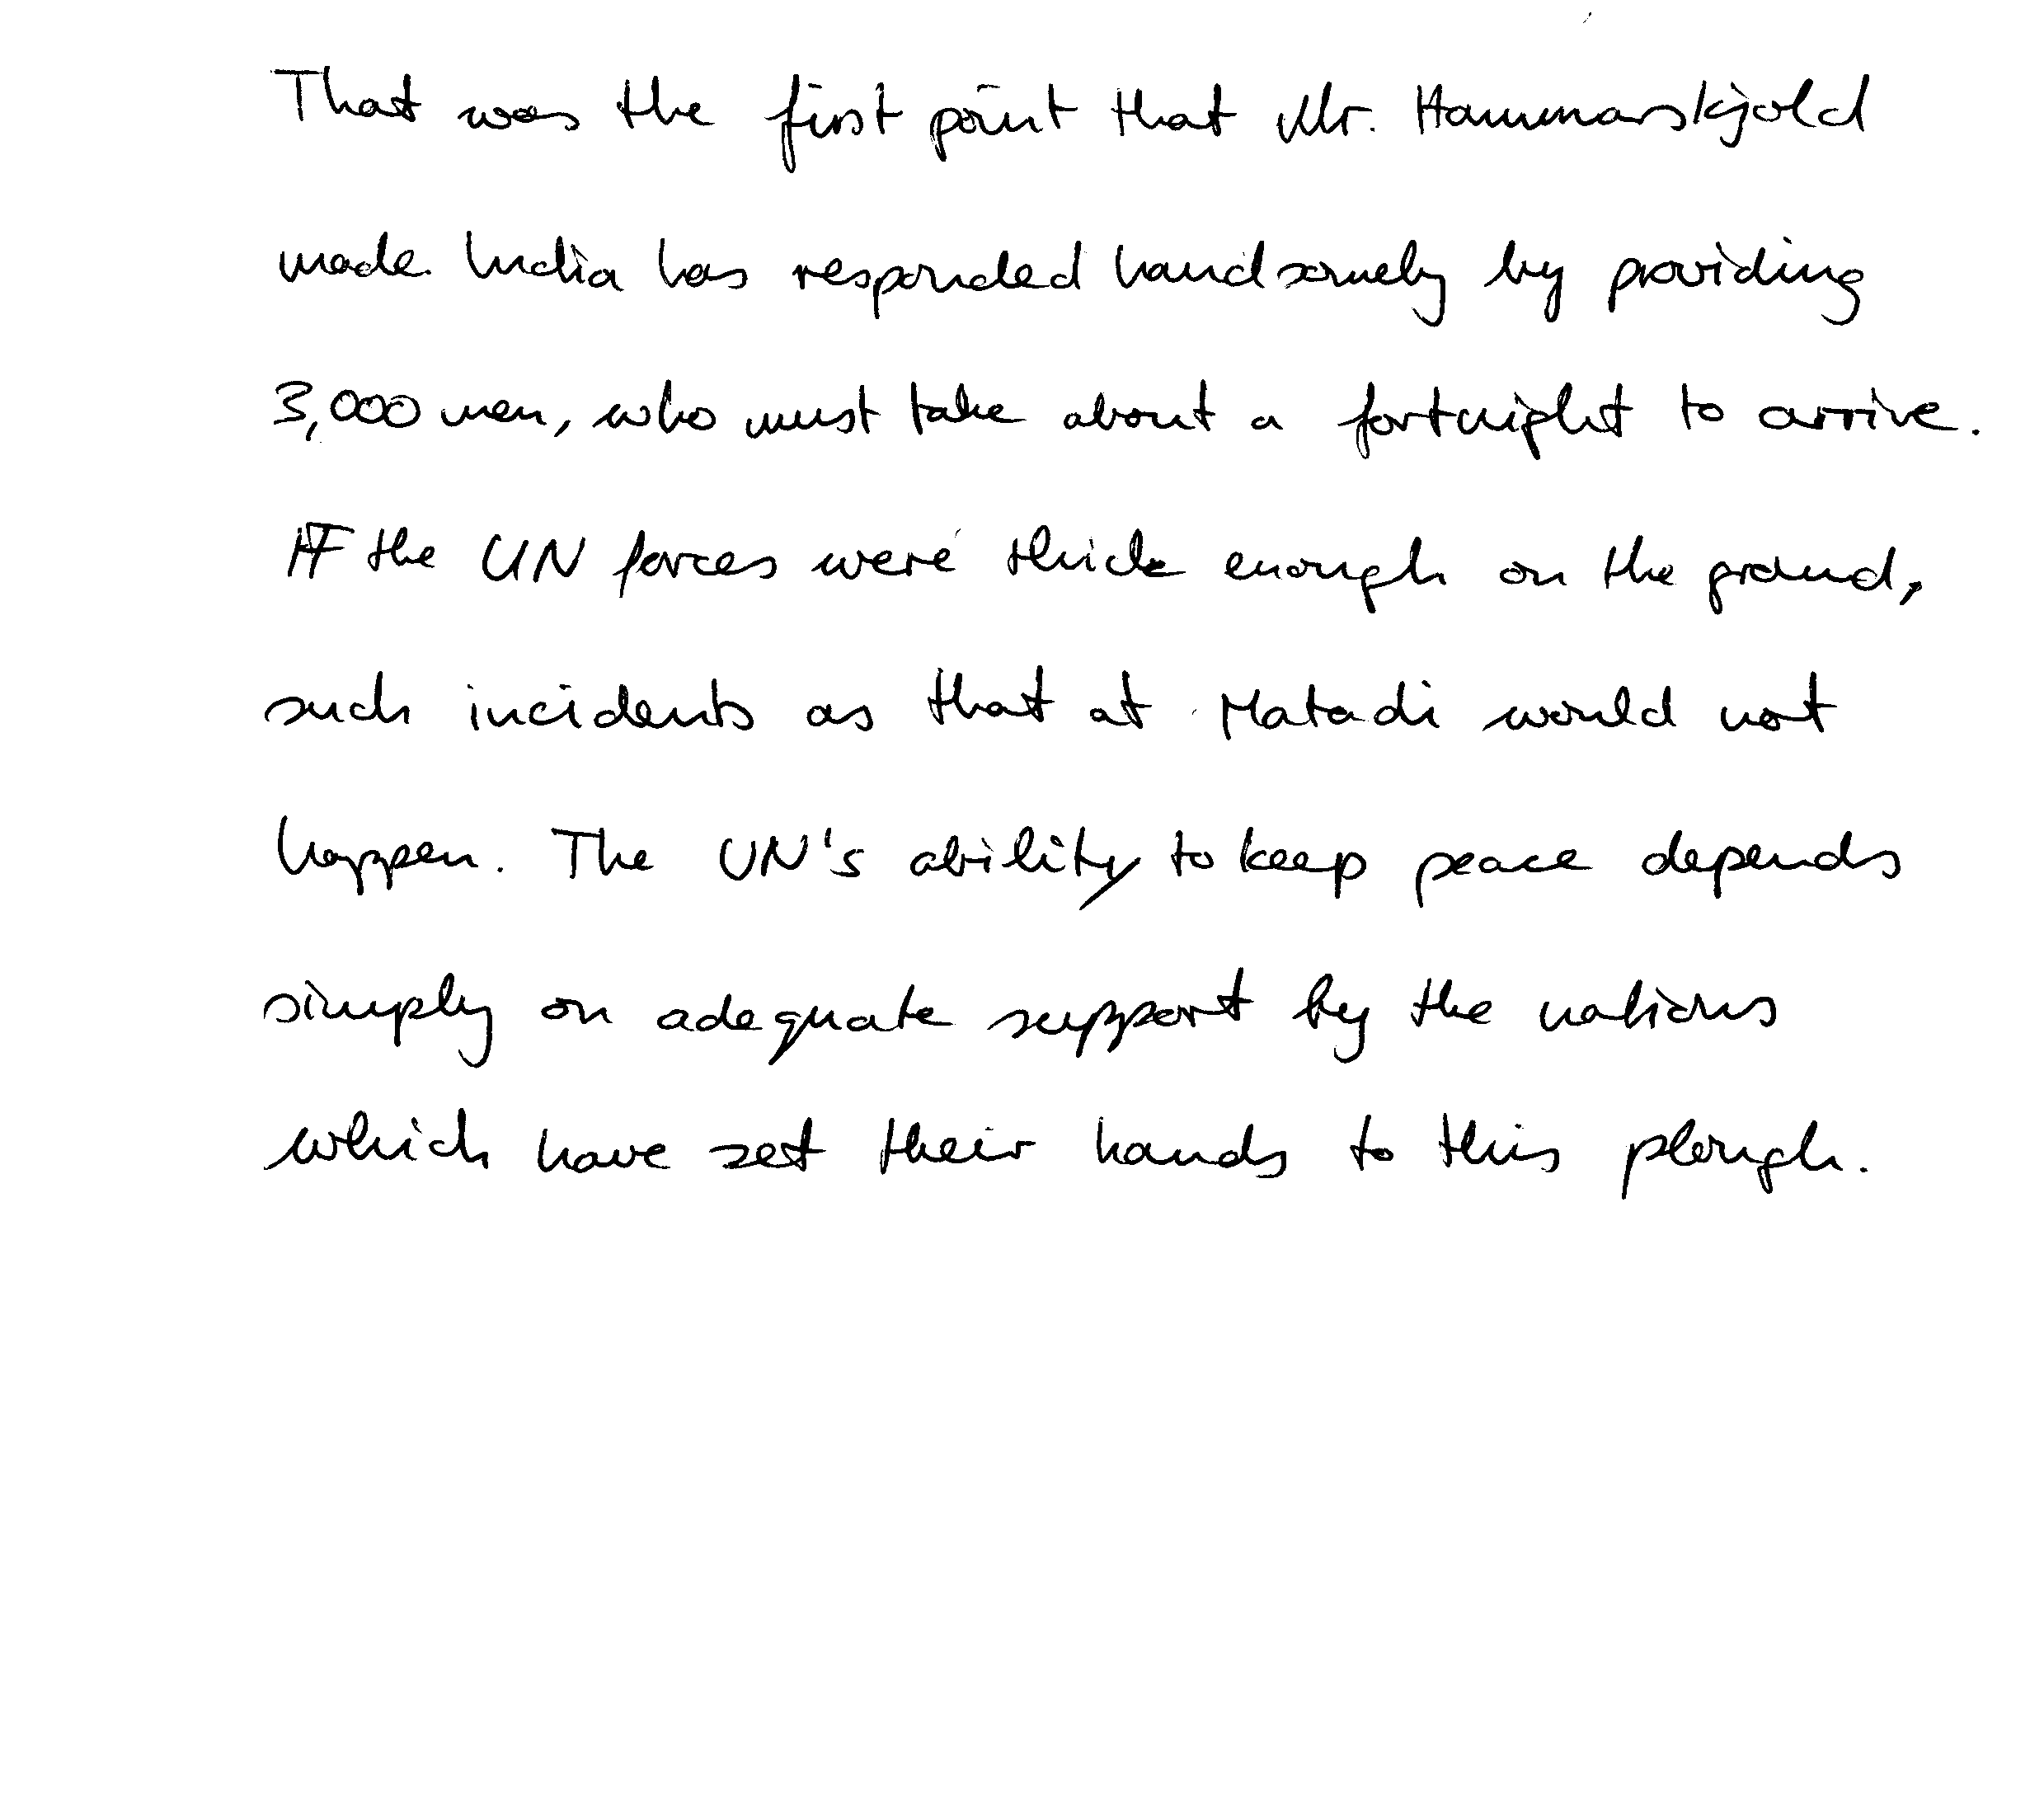 That was the first point that Mr. Hammarskjold
made. India has responded handsomely by providing
3,000 men, who must take about a fortnight to arrive.
If the UN forces were thick enough on the ground,
such incidents as that at Matadi would not
happen. The UN's ability to keep peace depends
simply on adequate support by the nations
which have set their hands to this plough.